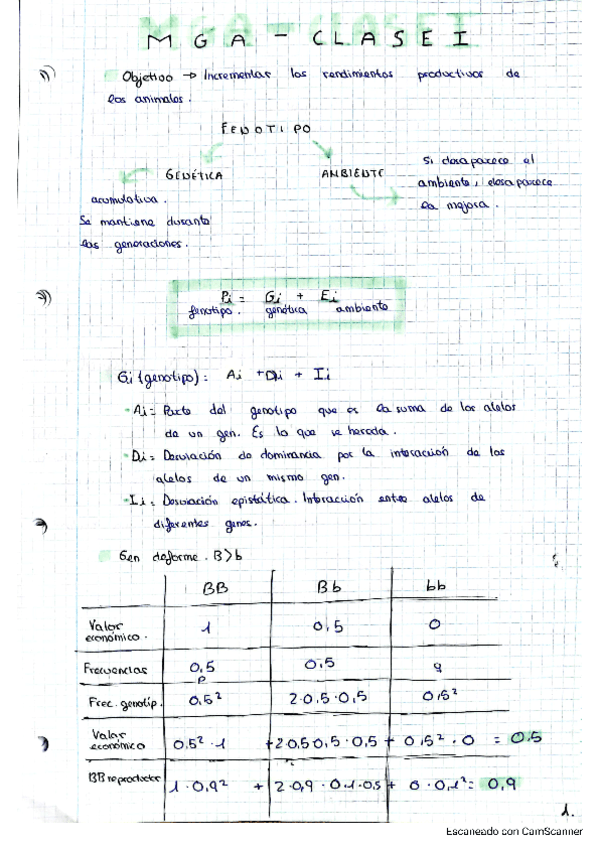 MGA - CLASE I
Objetivo → Incrementar los rendimientos productivos de
los animales.
FENOTIPO
GENÉTICA
acumulativa.
Se mantiene durante
las generaciones.
AMBIENTE
Si desaparece el
ambiente, desaparece
la mejora.
Pi = Gi + Ei
fenotipo. genética ambiente
Gi (genotipo): Ai + Di + Ii
- Ai = Parte del genotipo que es la suma de los alelos
de un gen. Es lo que se hereda.
- Di = Desviación de dominancia por la interacción de los
alelos de un mismo gen.
- Ii = Desviación epistática. Interacción entre alelos de
diferentes genes.
Gen deforme. B>b
BB Bb bb
Valor económico. 1 0,5 0
Frecuencias 0,5 p 0,5 q
Frec. genotíp. 0,5² 2·0,5·0,5 0,5²
Valor económico 0,5²·1 +2·0,5·0,5·0,5 + 0,5²·0 = 0,5
BB reproductor 1·0,9² + 2·0,9·0,1·0,5 + 0·0,1² = 0,9
1.
Escaneado con CamScanner